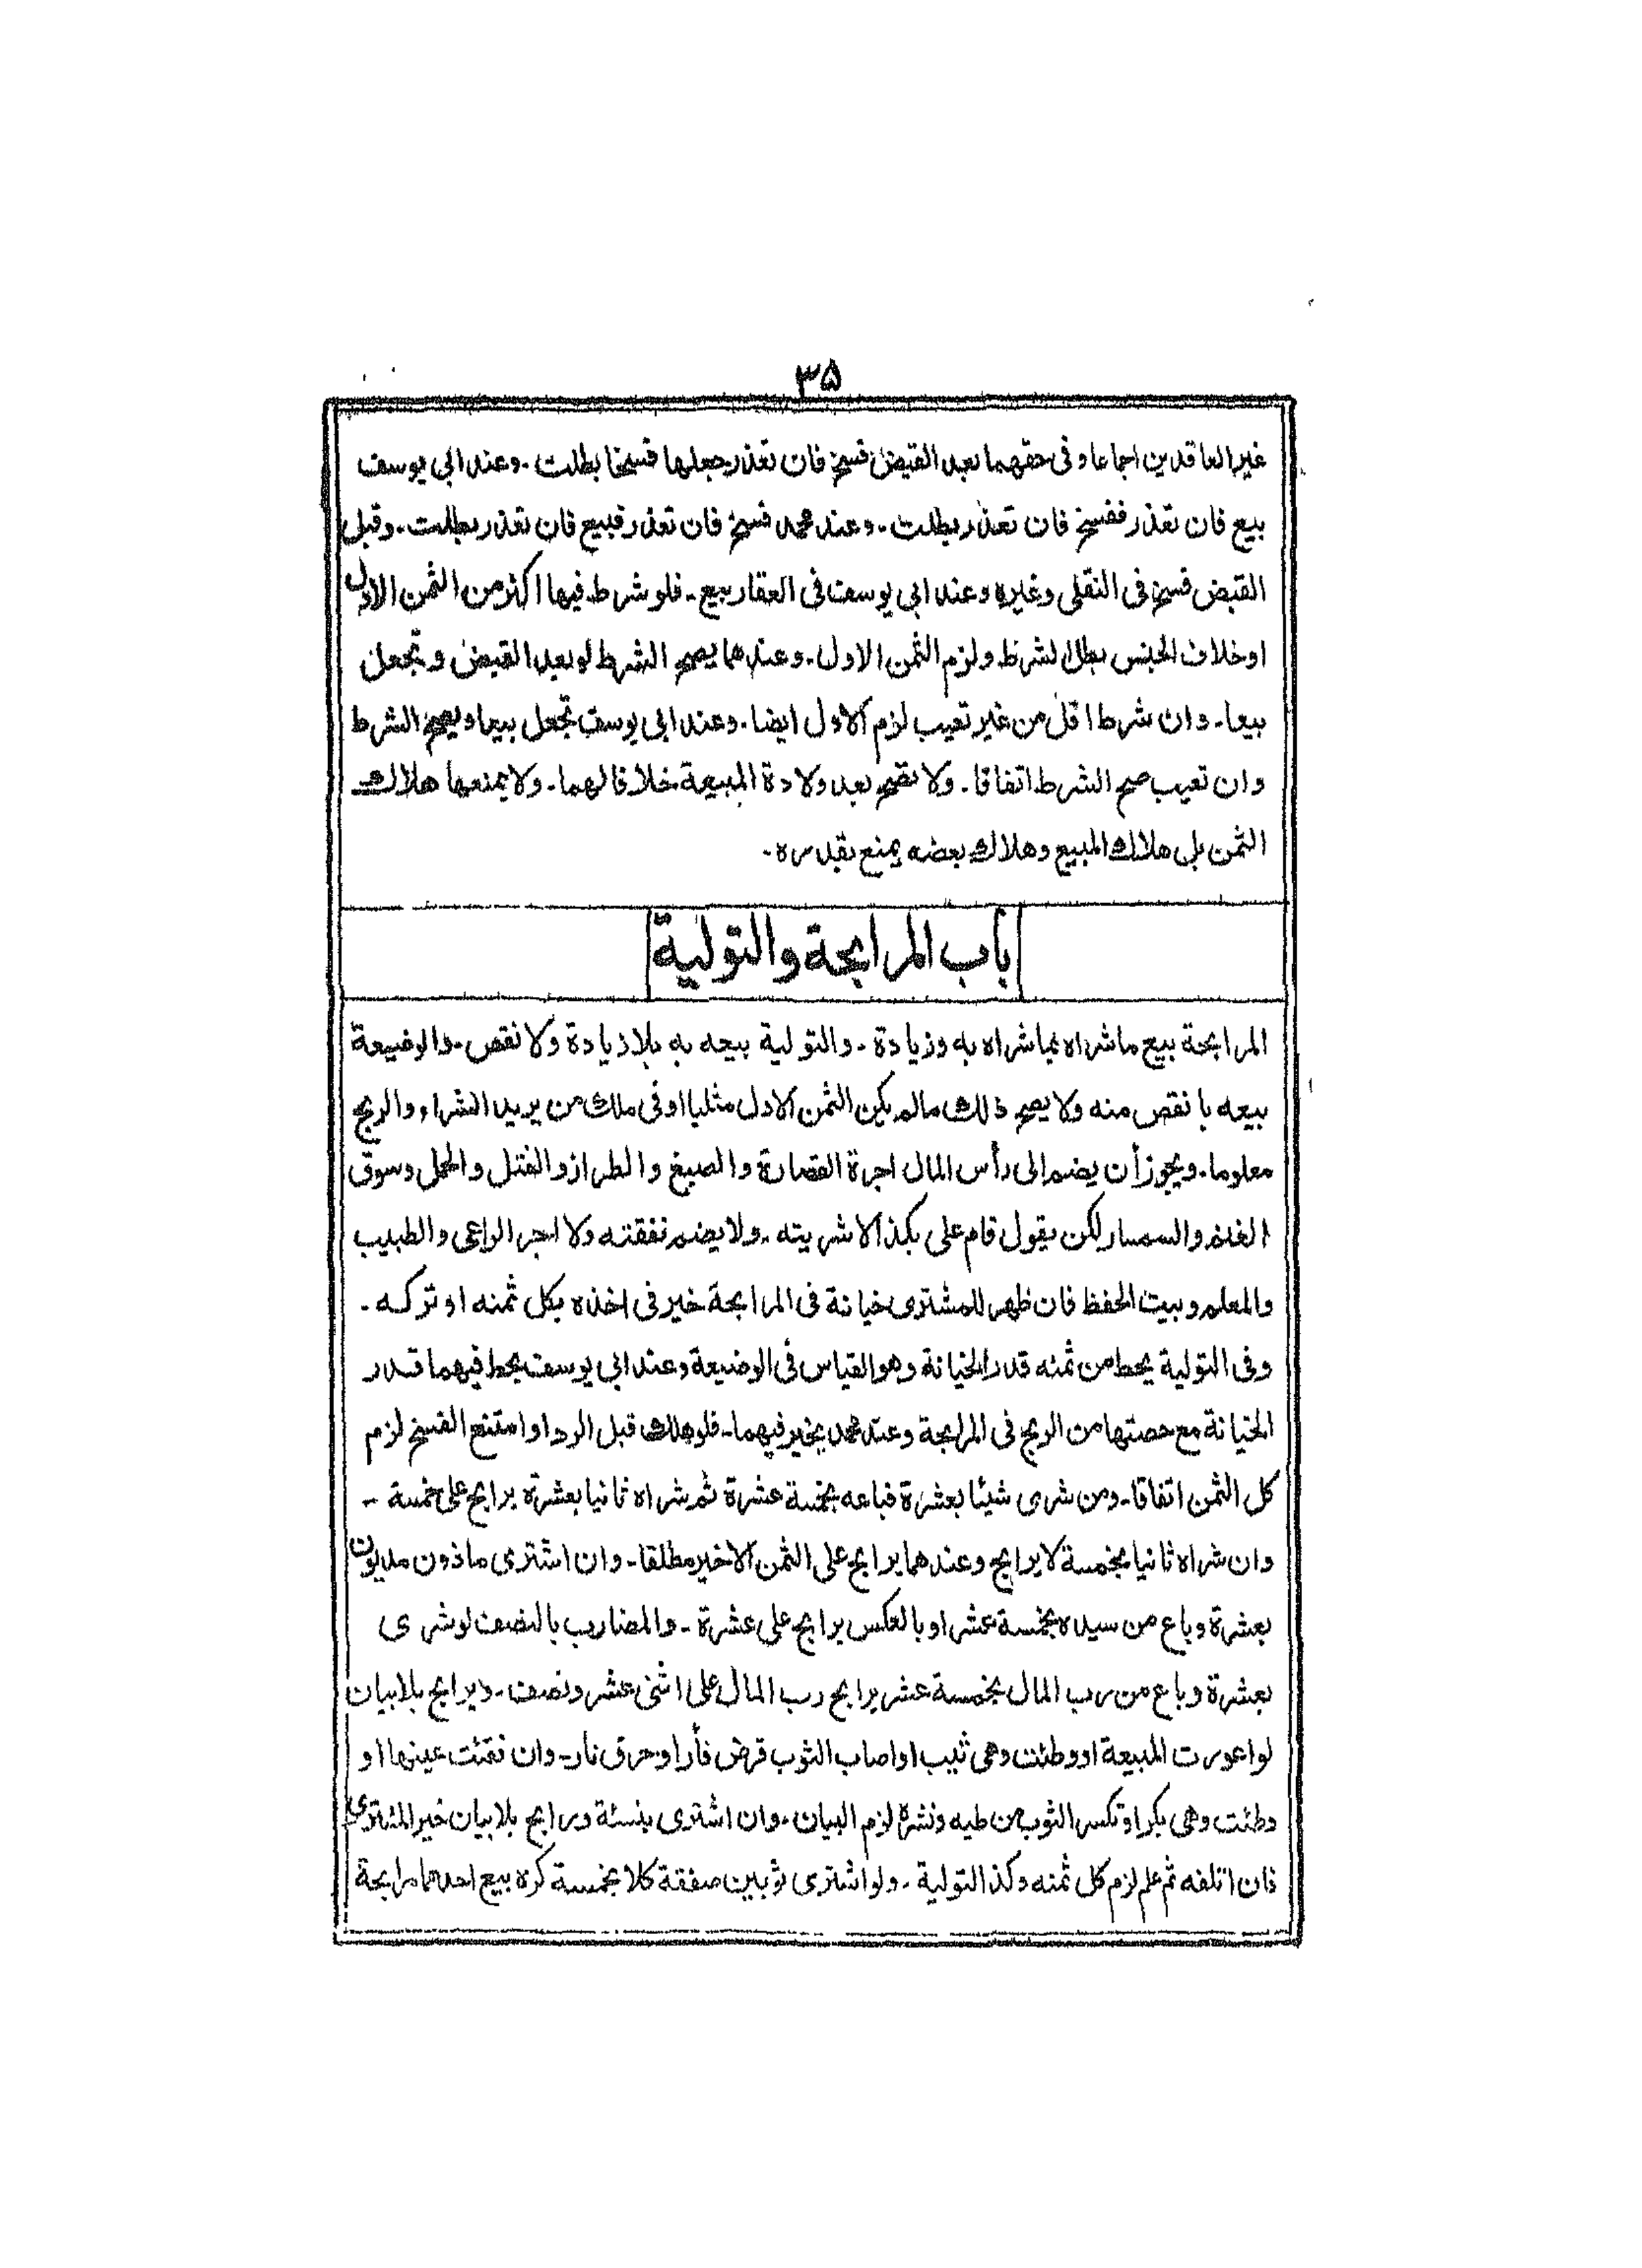 ۳۵
غير العاقدين اجماعا وفى حقهما بعد القبض فسخ فان تعذر جعلها فسخا بطلت ـ وعند ابي يوسف
بيع فان تعذر ففسخ فان تعذر بطلت ـ وعند محمد فسخ فان تعذر فبيع فان تعذر بطلت ـ وقبل
القبض فسخ فى النقلى وغيره وعند ابي يوسف فى العقار بيع ـ فلو شرط فيها اكثر من الثمن الاول
او خلاف الجنس بطل الشرط ولزم الثمن الاول ـ وعندهما يصح الشرط لو بعد القبض وتجعل
بيعا ـ وان شرط اقل من غير تعيب لزم الاول ايضا ـ وعند ابى يوسف تجعل بيعا ويصح الشرط
وان تعيب صح الشرط اتفاقا ـ ولا تصح بعد ولادة المبيعة خلافا لهما ـ ولا يمنعها هلاك
الثمن بل هلاك المبيع وهلاك بعضه يمنع بقدره ـ
باب المرابحة والتولية
المرابحة بيع ما شراه بما شراه به وزيادة ـ والتولية بيعه به بلا زيادة ولا نقص ـ والوضيعة
بيعه بانقص منه ولا يصح ذلك مالم يكن الثمن الاول مثليا او فى ملك من يريد الشراء والربح
معلوما ـ ويجوز أن يضم الى رأس المال اجرة القصارة والصبغ والطراز والفتل والحمل وسوق
الغنم والسمسار لكن يقول قام على بكذا لا شريته ـ ولا يضم نفقته ولا اجر الراعى والطبيب
والمعلم وبيت الحفظ فان ظهر للمشترى خيانة فى المرابحة خير فى اخذه بكل ثمنه او تركه ـ
وفى التولية يحط من ثمنه قدر الخيانة وهو القياس فى الوضيعة وعند ابي يوسف يحط فيهما قدر
الخيانة مع حصتها من الربح فى المرابحة وعند محمد يخير فيهما ـ فلو هلك قبل الرد او امتنع الفسخ لزم
كل الثمن اتفاقا ـ ومن شرى شيئا بعشرة فباعه بخمسة عشرة ثم شراه ثانيا بعشرة يرابح على خمسة ـ
وان شراه ثانيا بخمسة لا يرابح وعندهما يرابح على الثمن الاخير مطلقا ـ وان اشترى ماذون مديون
بعشرة وباع من سيده بخمسة عشر او بالعكس يرابح على عشرة ـ والمضارب بالنصف لو شرى
بعشرة وباع من رب المال بخمسة عشر يرابح رب المال على اثنى عشر ونصف ـ ويرابح بلا بيان
لو اعورت المبيعة او وطئت وهى ثيب او اصاب الثوب قرض فأر او حرق نار ـ وان فقئت عينها او
وطئت وهى بكر او تكسر الثوب من طيه ونشره لزم البيان ـ وان اشترى بنسئة ورابح بلا بيان خير المشترى
فان اتلفه ثم علم لزم كل ثمنه وكذا التولية ـ ولو اشترى ثوبين صفقة كلا بخمسة كره بيع احدهما مرابحة